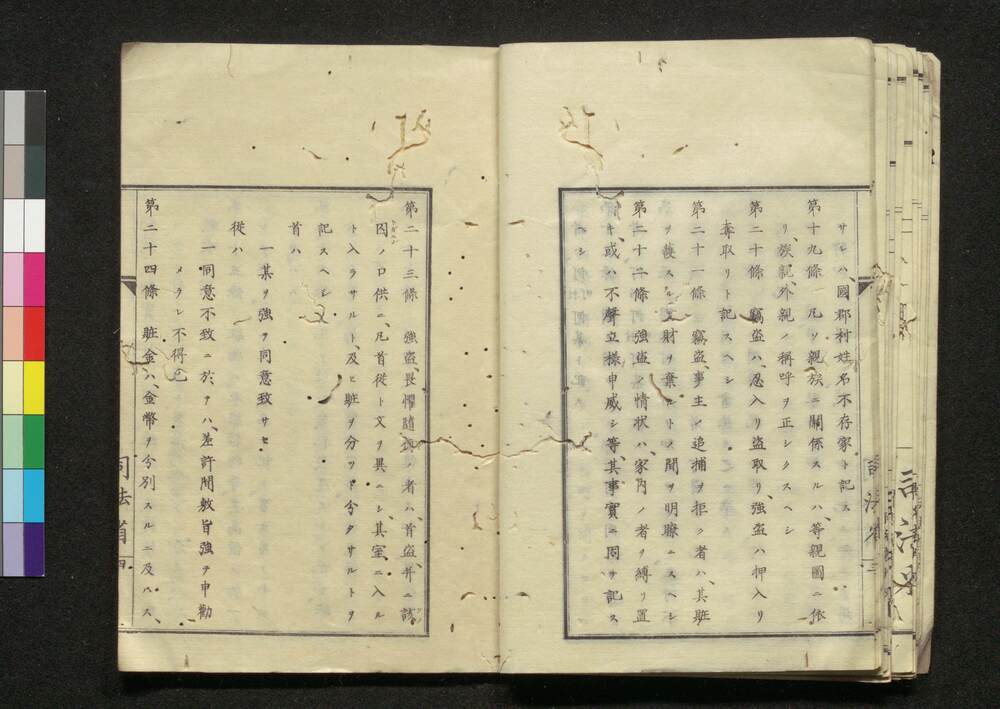 サレハ、國郡村姓名不存家ト記スヘシ、
第十九條 凡ソ親族ニ關係スルハ、等親圖ニ依
リ、族親、外親ノ稱呼ヲ正シクスヘシ
第二十條 竊盗ハ、忍入リ盗取リ、強盗ハ押入リ
奪取リト記スヘシ
第二十一條 竊盗、事主ノ追捕ヲ拒ク者ハ、其賍
ヲ護スルト財ヲ棄ルトノ間ヲ明瞭ニスヘシ
第二十二條 強盗ノ情状ハ、家内ノ者ヲ縛リ置
キ、或ハ不聲立様申威シ等、其事實ニ因リ記ス
ヘシ
第二十三條 強盗、畏懼隨行ノ者ハ、首盗并ニ該
囚ノ口供ニ、凡首從ト文ヲ異ニシ其室ニ入ル
ト入ラサルト、及ヒ賍ヲ分ツト分タサルトヲ
記スヘシ
首ハ
一某ヲ強ヲ同意致サセ
從ハ
一同意不致ニ於ヲハ、差許間敷旨強テ申勸
メラレ不得已
第二十四條 賍金ハ、金幣ヲ分別スルニ及ハス、
司法省
四
司法省
三